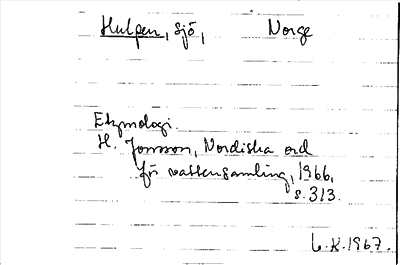 Hulpen, sjö, Norge
Etymologi.
H. Jonsson, Nordiska ord
för vattensamling, 1966,
s. 313.
L.K. 1967.